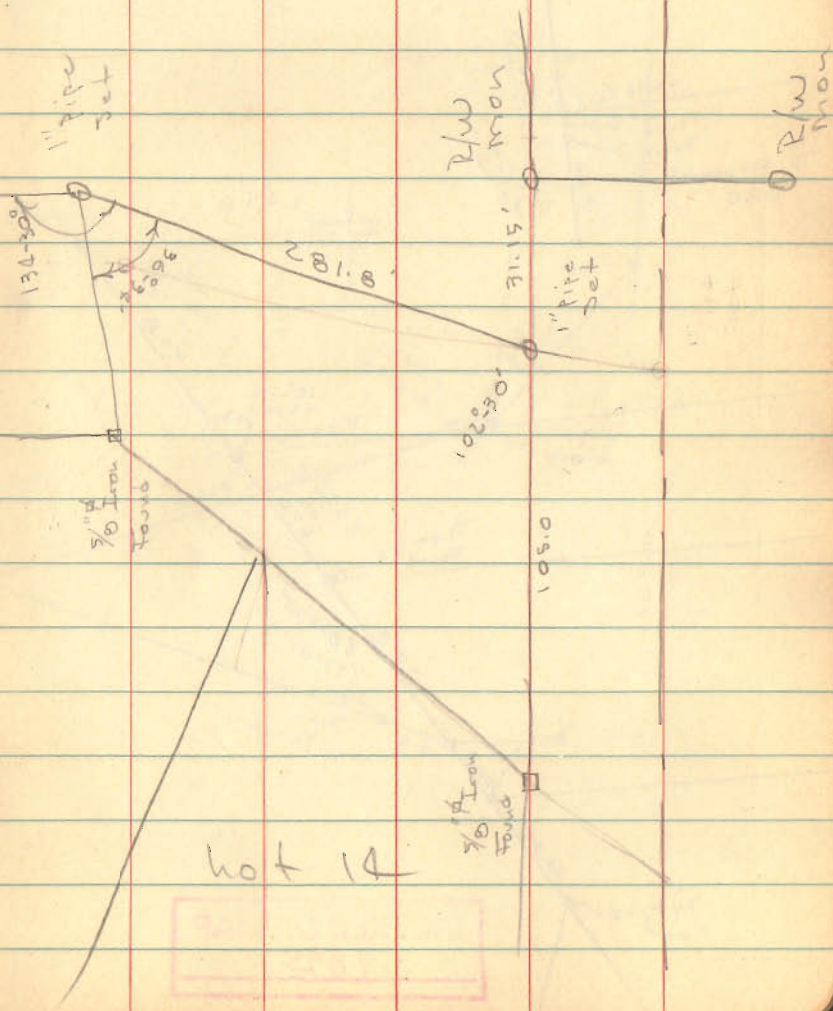 1" Pipe
Set
134-30'
36°
281.8'
R/W
mon
R/W
mon
31.15'
1" Pipe
Set
102°-30'
105.0
5/8"ϕ Iron
Found
5/8"ϕ Iron
Found
Lot 14